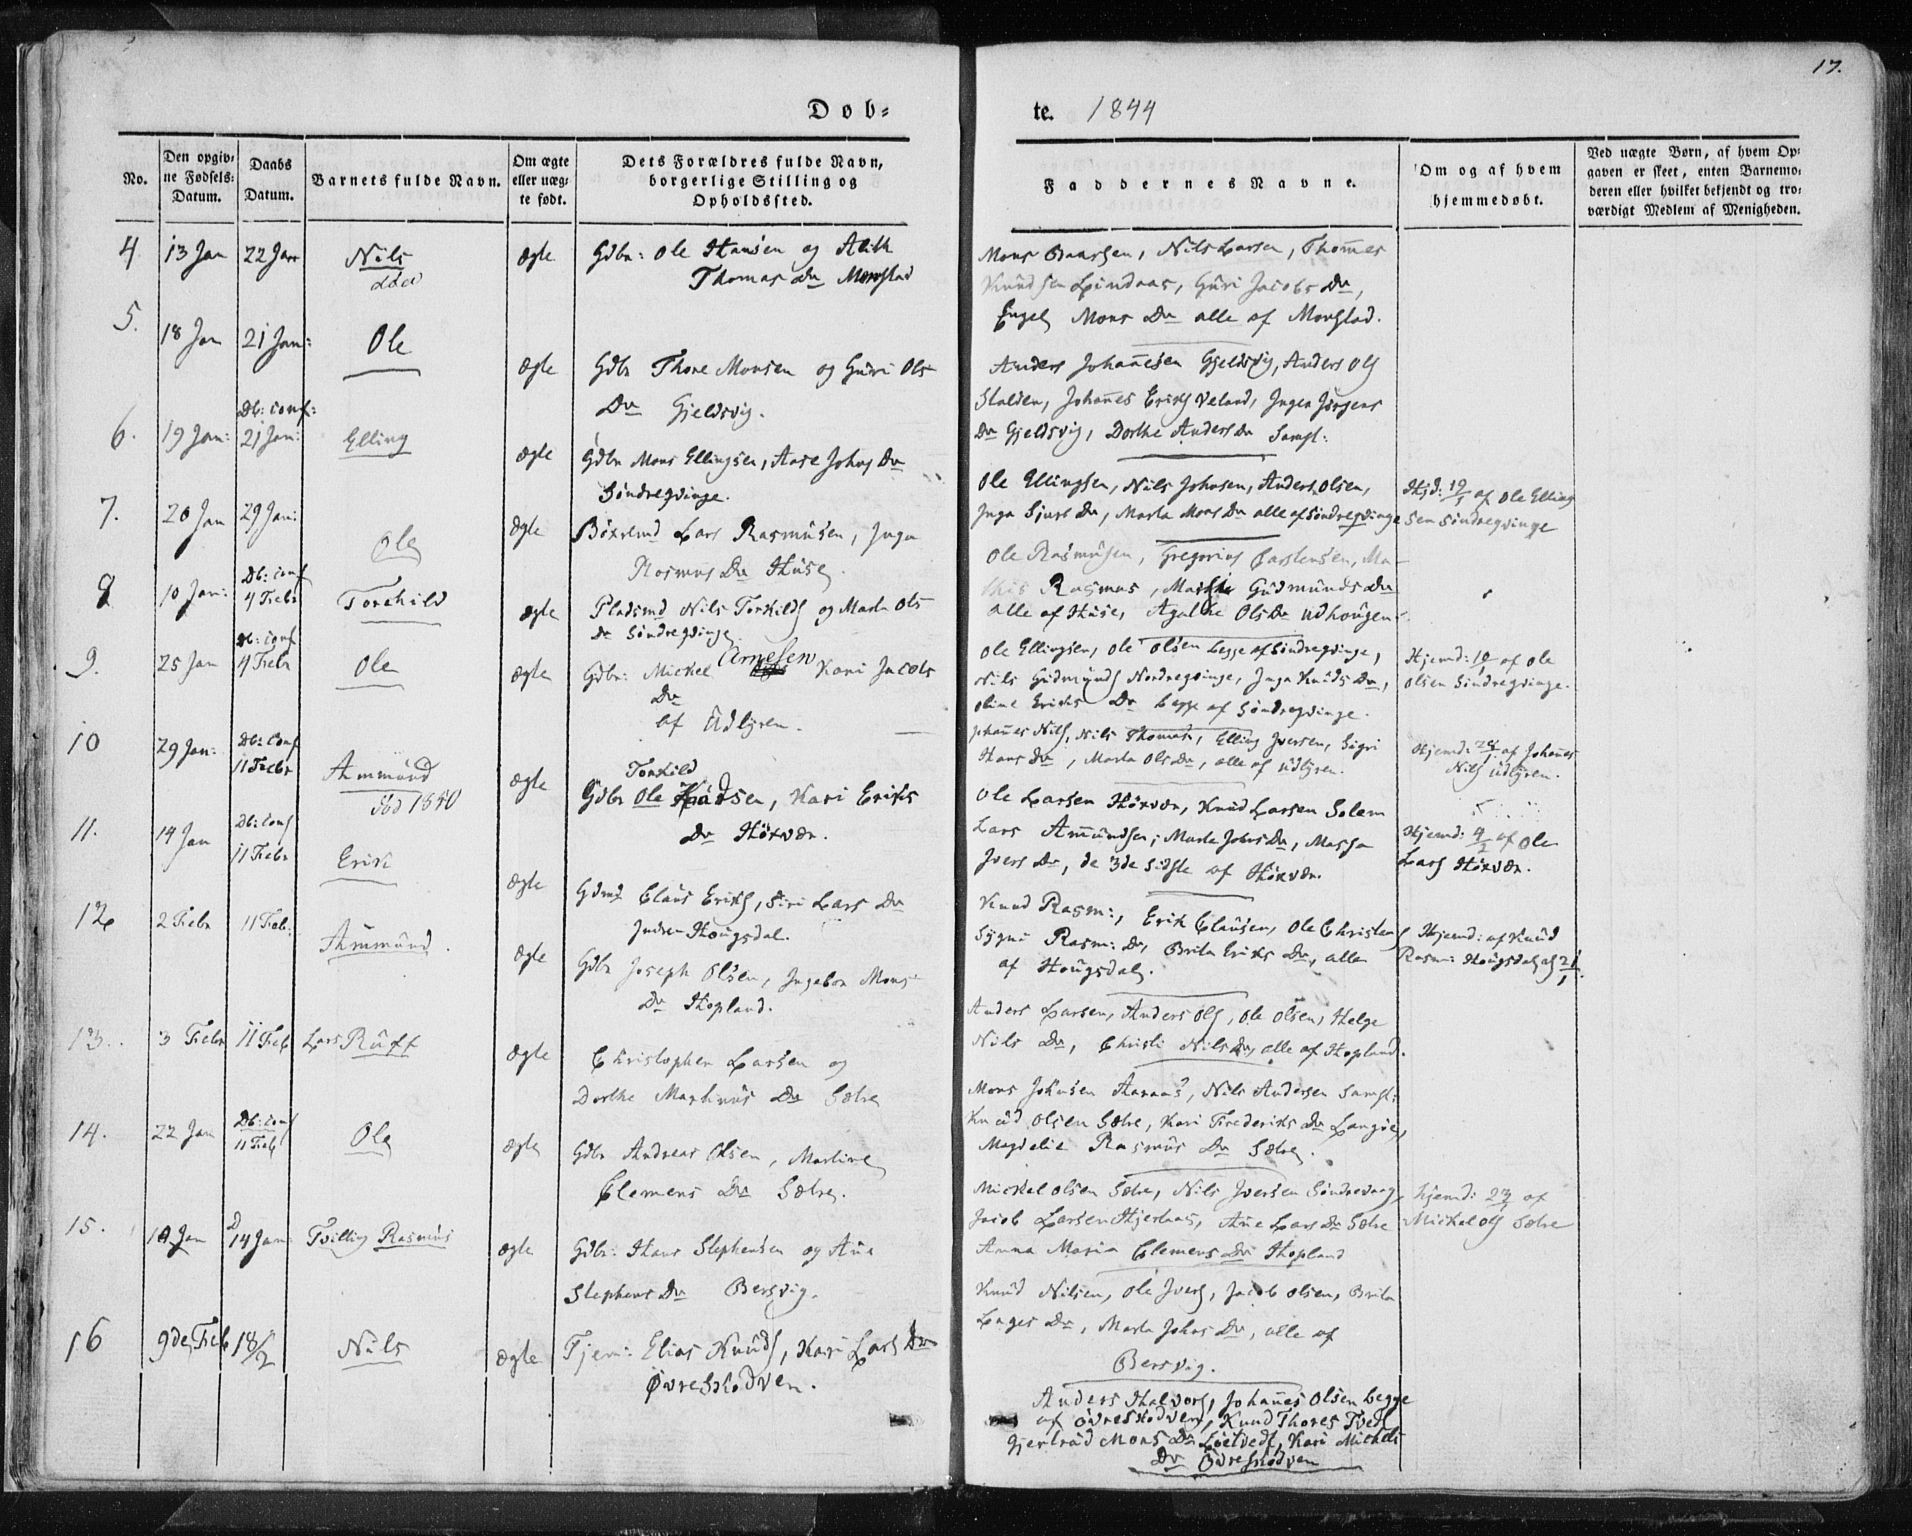 17.
Døb=
te. 1844
No.
Den opgiv=
ne Fødsels=
Datum.
Daabs
Datum.
Barnets fulde Navn.
Om ægte
eller uæg=
te født.
Dets Forældres fulde Navn,
borgerlige Stilling og
Opholdssted.
Faddernes Navne.
Om og af hvem
hjemmedøbt.
Ved uægte Børn, af hvem Op=
gaven er skeet, enten Barnemo=
deren eller hvilket bekjendt og tro=
værdigt Medlem af Menigheden.
4 13 Jan 22 Jan Nils ægte Gdbr: Ole Hansen og
Thomas Dr
Mons Nils Larsen, Thomes
Knudsen Lindaas, Guri Jacobs Dr,
Engel Mons Dr alle af
5. 18 Jan 21 Jan: Ole ægte Gdbr Thore Monsen og Guri Ols
Dr Gjeldsvig.
Anders Johanesen Gjeldsvig, Anders Ols
Johanes Eriks Veland, Inger Jørgens
Dr Gjeldsvig, Dorthe Anders Dr Samst:
6. 19 Jan: Db: Conf: 21 Jan: Elling ægte Gdbr Mons Ellingsen, Aase Johns Dr
Søndreqvinge.
Ole Ellingsen, Nils Johnsen, Anders Olsen,
Inga Sjurs Dr, Marta Mons Dr alle af Søndreqvinge
Hjd: 19/1 af Ole Elling
sen Søndreqvinge
7. 20 Jan 29 Jan: Ole ægte Lars Rasmusen, Inga
Rasmus Dr Huse
Ole Rasmusen, Gregorius Carstensen, Ma-
Rasmus, Gudmunds Dr
alle af Huse, Agathe Ols Dr Udhougen
8 10 Jan: Db: Conf 4 Febr Torchild ægte Pladsmd Nils Torkilds og Marta Ols
Dr Søndreqvinge
Ole Ellingsen, Ole Olsen begge af Søndreqvinge,
Nils Gudmunds Nordreqvinge, Inga Knuds Dr,
Oline Eriks Dr begge af Søndreqvinge.
Hjemd: 10/1 af Ole
Olsen Søndreqvinge.
9. 25 Jan Db: Conf 4 Febr Ole ægte Gdbr: Mickel Arnesen Kari Jacobs
Dr
af Udlyren.
Johanes Nils, Nils Thomas, Elling Iversen, Sigri
Hans Dr, Marta Ols Dr, alle af Udlyren.
Hjemd: af Johanes
Nils Udlyren.
10 29 Jan: Db: Conf 11 Febr Ammund
ægte Torkild
Gdbr Ole Knudsen, Kari Eriks
Dr Høxvær.
Ole Larsen Høxvær, Knud Larsen Solem
Lars Amundsen, Marta Johns Dr,
Ivers Dr, de 3de sidste af Høxvær.
Hjemd: 4/2 af Ole
Lars Høxvær.
11. 14 Jan Db: Conf 11 Febr Erik ægte Gdmd Claus Eriks, Siri Lars Dr
Indre Hougsdal.
Knud Rasm:, Erik Clausen, Ole Christens
Rasm: Dr, Brita Eriks Dr, alle
af Hougsdal.
Hjemd: af Knud
Rasm: Hougsdal
12 2 Febr 11 Feb: Ammund. ægte Gdbr Joseph Olsen, Ingebor Mons
Dr Hopland.
Anders Larsen, Anders Ols, Ole Olsen, Helge
Nils Dr, Christi Nils Dr, alle af Hopland.
13. 3 Febr 11 Feb Lars Ruff ægte Christopher Larsen og
Dorthe Martinus Dr Sætre
Mons Johnsen Nils Andersen Samst:
Knud Olsen Sætre, Kari Frederiks Dr Langøe,
Magdelie Rasmus Dr Sætre.
14. 22 Jan Db: Conf 11 Feb Ole ægte Gdbr Andreas Olsen, Martine
Clemens Dr Sætre.
Mickel Olsen Sætre, Nils Iversen
Jacob Larsen Ane Lars Dr Sætre
Anna Maria Clemens Dr Hopland
Hjemd: 23/1 af
Mickel Ols Sætre
15. 10 Jan 14 Jan Tvilling Rasmus ægte Gdbr: Hans Stephensen og Ane
Stephens Dr Bersvig.
Knud Nilsen, Ole Ivers, Jacob Olsen, Brita
Dr, Marta Johns Dr, alle af
Bersvig.
16 9de Feb 18/2 Nils ægte Tjen: Elias Knuds, Kari Lars Dr
Øvreskodven.
Anders Halvors, Johanes Olsen begge
af Øvreskodven, Knud Thores Tvedt
Gjertrud Mons Dr Kari Michels
Dr Øvreskodven